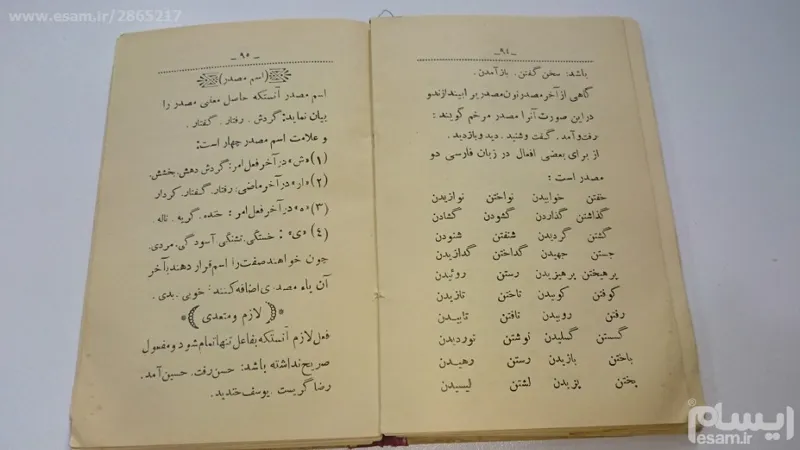 www.esam.ir/2865217
ـ ٩٤ ـ
باشد: سخن گفتن . باز آمدن .
گاهی از آخر مصدر نون مصدر بر ابیندازندو
دراین صورت آنرا مصدر مرخم گویند :
رفت و آمد . گفت و شنید . دید و بازدید .
از برای بعضی افعال در زبان فارسی دو
مصدر است :
خفتن خوابیدن نواختن نوازیدن
گذاشتن گذاردن گشودن گشادن
گشتن گردیدن شنفتن شنودن
جستن جهیدن گداختن گدازیدن
پرهیختن پرهیزیدن رستن روئیدن
کوفتن کوبیدن تاختن تازیدن
رفتن روبیدن تافتن تابیدن
گسستن گسلیدن نوشتن نوردیدن
باختن بازیدن رستن رهیدن
پختن پزیدن لشتن لیسیدن
ـ ٩٥ ـ
(اسم مصدر)
اسم مصدر آنستکه حاصل معنی مصدر را
بیان نماید: گردش . رفتار . گفتار .
و علامت اسم مصدر چهار است:
(١) «ش» در آخر فعل امر: گردش دهش بخشش.
(٢) «ار» در آخر ماضی: رفتار. گفتار. کردار
(٣) «ه» در آخر فعل امر : خنده . گریه . ناله
(٤) «ی» : خستگی. تشنگی آسودگی. مردی.
چون خواهند صفت را اسم قرار دهند بآخر
آن یاء مصدری اضافه کنند: خوبی . بدی .
(لازم و متعدی)
فعل لازم آنستکه بفاعل تنها تمام شود و مفعول
صریح نداشته باشد: حسن رفت. حسین آمد.
رضا گریست . یوسف خندید.
ایسام
esam.ir